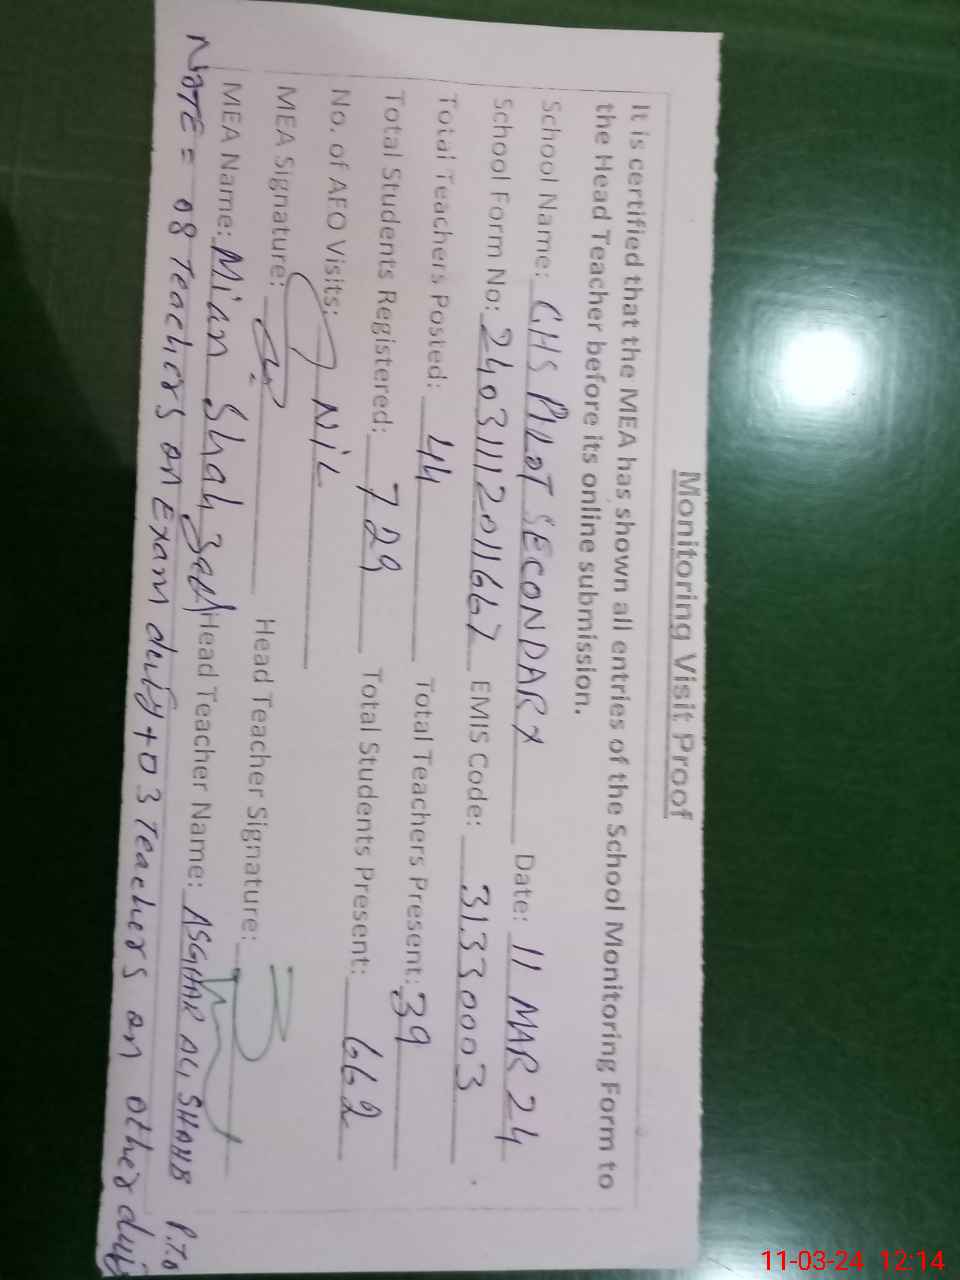 Monitoring Visit Proof
It is certified that the MEA has shown all entries of the School Monitoring Form to
the Head Teacher before its online submission.
School Name: GHS PILOT SECONDARY Date: 11 MAR 24
School Form No: 24031112011667 EMIS Code: 31330003
Total Teachers Posted: 44 Total Teachers Present: 39
Total Students Registered: 729 Total Students Present: 662
No. of AFO Visits: NIL
MEA Signature: Head Teacher Signature:
MEA Name: Mian Shah Head Teacher Name: ASGHAR ALI SHAHB
NOTE = 08 Teachers on Exam duty + 03 Teachers on other duty
P.T.O
11-03-24 12:14